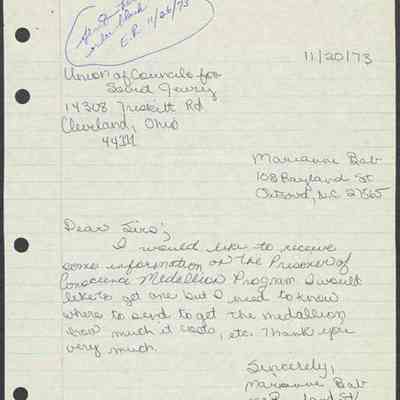 sent
order blank
E.R. 11/26/73
11/20/73
Union of Councils for
Soviet Jewry
14308 Triskett Rd
Cleveland, Ohio
44111
Marianne Bab
108 Rayland St
Oxford, N.C. 27565
Dear Sirs;
I would like to receive
some information on the Prisoner of
Conscience Medallion Program. I would
like to get one but I need to know
where to send to get the medallion
how much it costs, etc. Thank you
very much.
Sincerely,
Marianne Bab